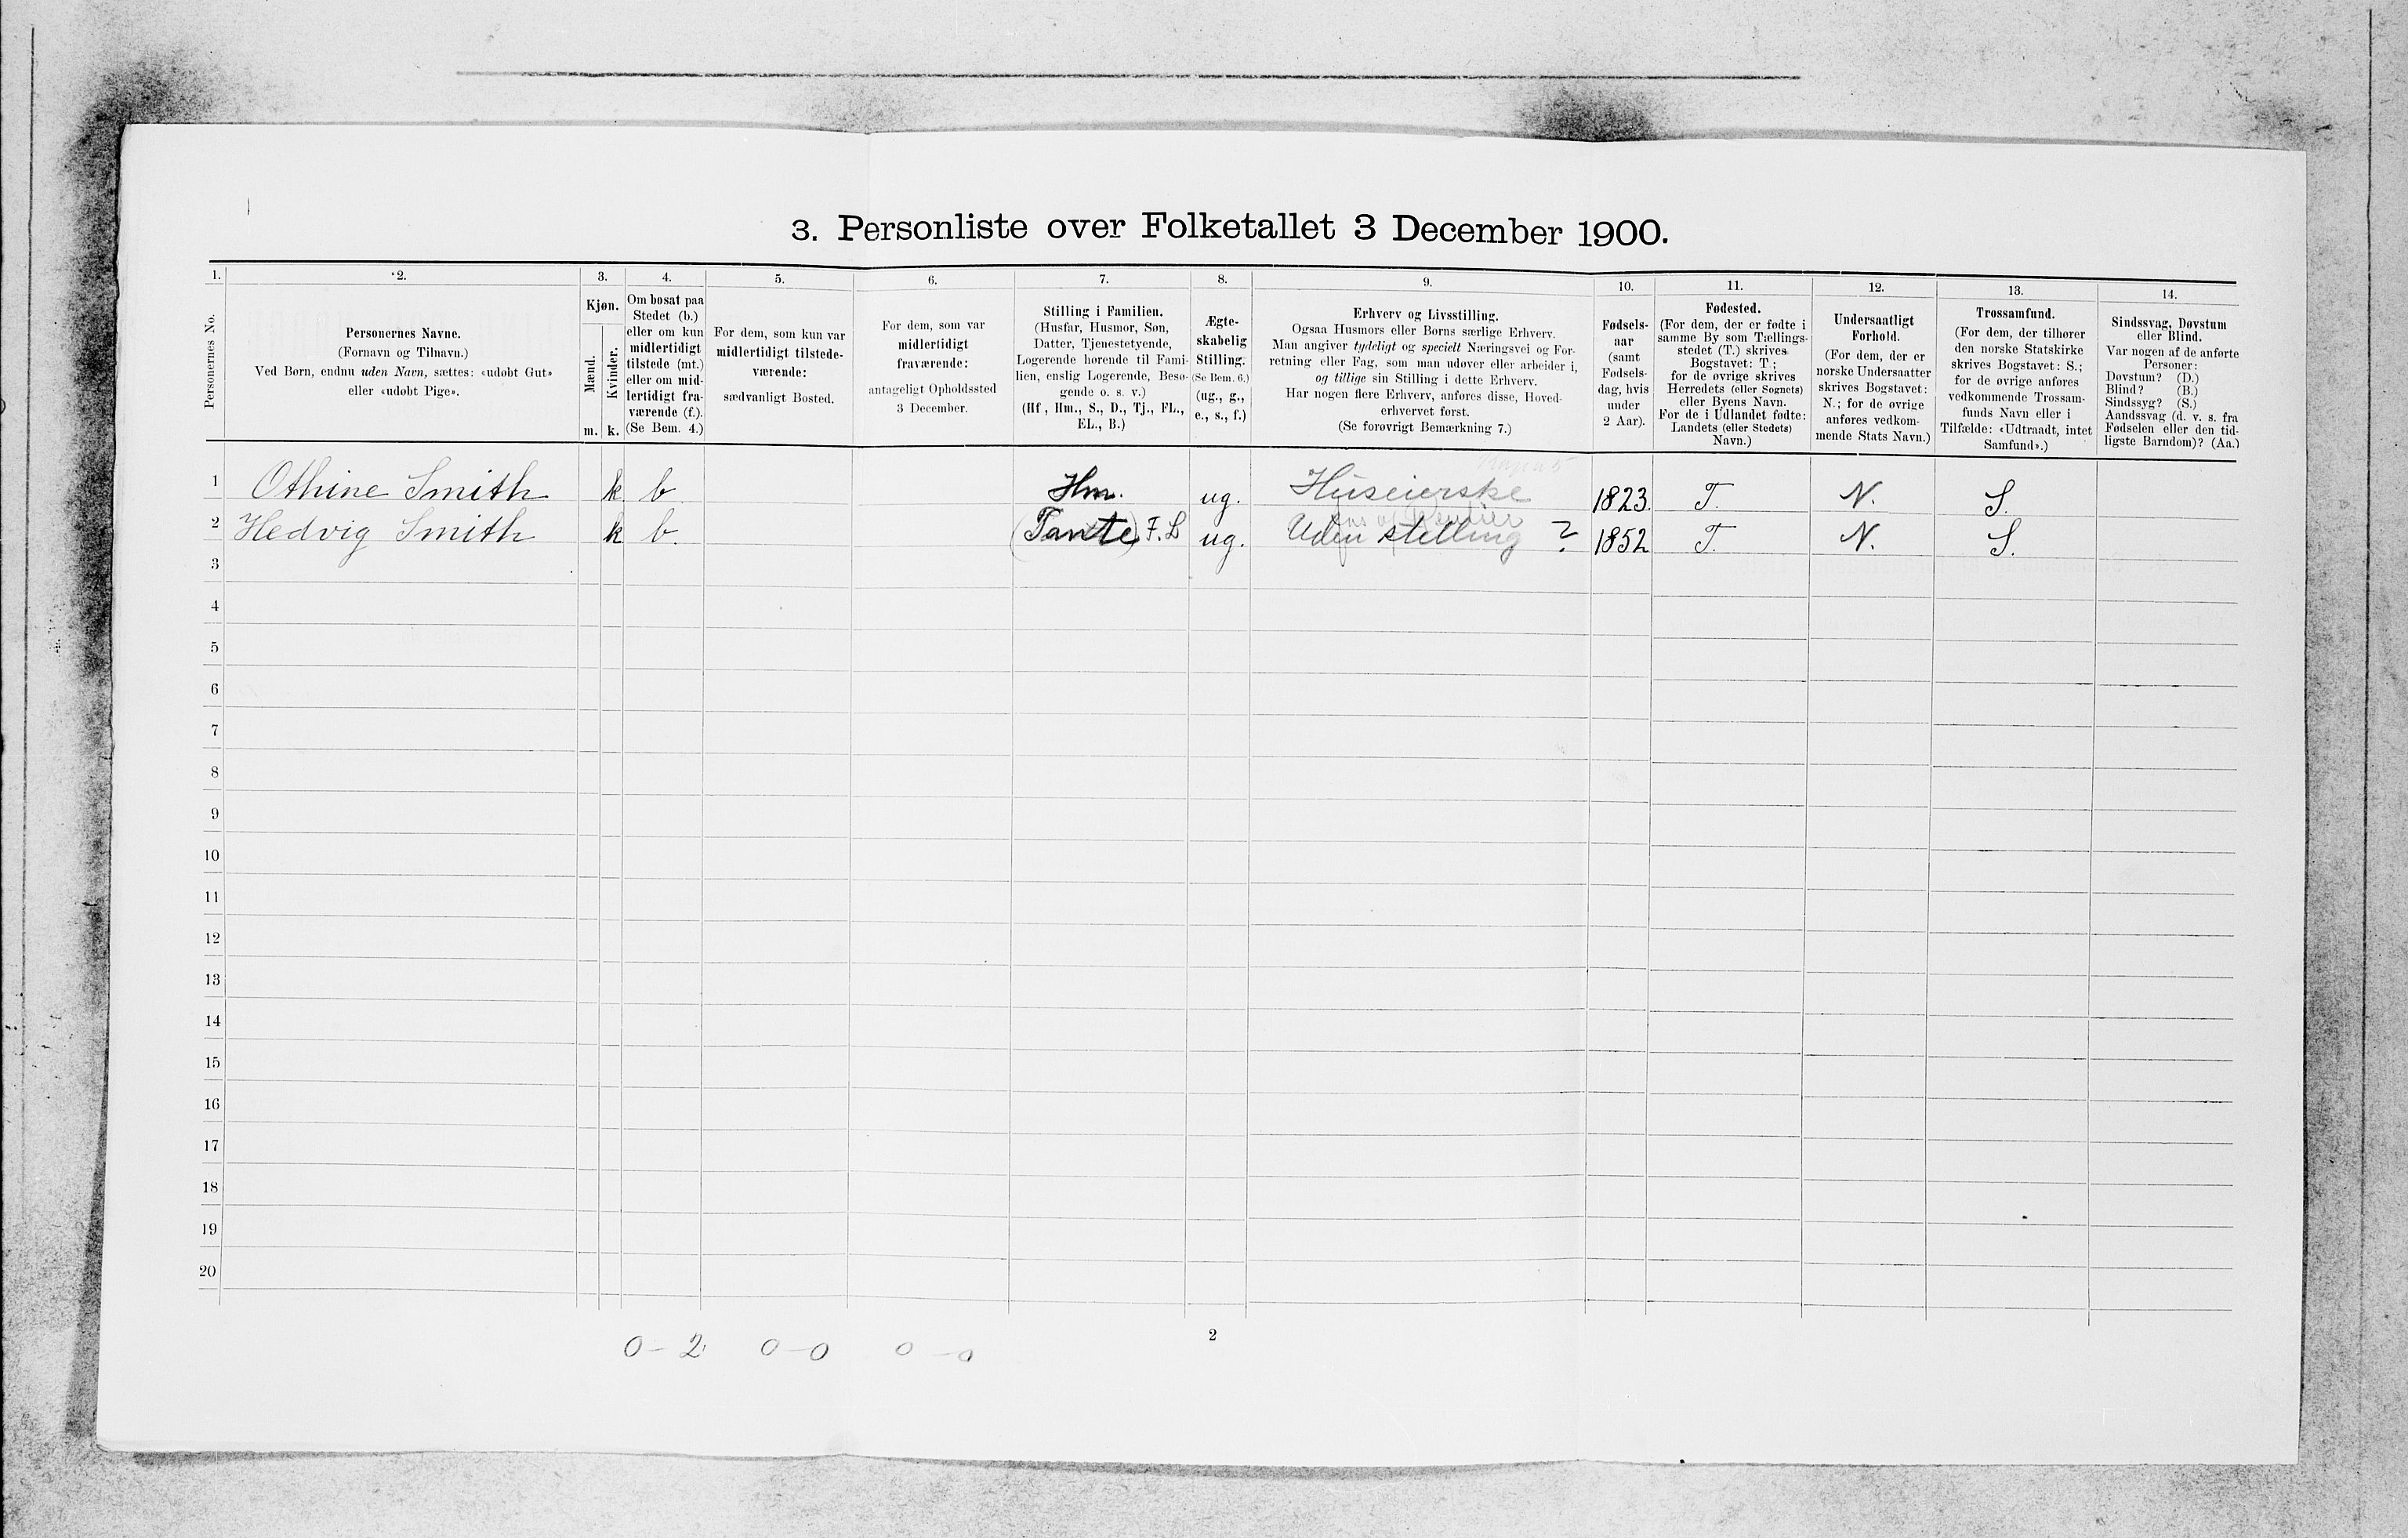 3. Personliste over Folketallet 3 December 1900.
1. 2. 3. 4. 5. 6. 7. 8. 9. 10. 11. 12. 13. 14.
Personernes No.
Personernes Navne.
(Fornavn og Tilnavn.)
Ved Børn, endnu uden Navn, sættes: «udøbt Gut»
eller «udøbt Pige».
Kjøn.
Mænd.
Kvinder.
m. k.
Om bosat paa
Stedet (b.)
eller om kun
midlertidigt
tilstede (mt.)
eller om mid-
lertidigt fra-
værende (f.).
(Se Bem. 4.)
For dem, som kun var
midlertidigt tilstede-
værende:
sædvanligt Bosted.
For dem, som var
midlertidigt
fraværende:
antageligt Opholdssted
3 December.
Stilling i Familien.
(Husfar, Husmor, Søn,
Datter, Tjenestetyende,
Logerende hørende til Fami-
lien, enslig Logerende, Besø-
gende o. s. v.)
(Hf, Hm., S., D., Tj., FL.,
EL., B.)
Ægte-
skabelig
Stilling.
(Se Bem. 6.)
(ug., g.,
e., s., f.)
Erhverv og Livsstilling.
Ogsaa Husmors eller Børns særlige Erhverv.
Man angiver tydeligt og specielt Næringsvei og For-
retning eller Fag, som man udøver eller arbeider i,
og tillige sin Stilling i dette Erhverv.
Har nogen flere Erhverv, anføres disse, Hoved-
erhvervet først.
(Se forøvrigt Bemærkning 7.)
Fødsels-
aar
(samt
Fødsels-
dag, hvis
under
2 Aar).
Fødested.
(For dem, der er fødte i
samme By som Tællings-
stedet (T.) skrives
Bogstavet: T;
for de øvrige skrives
Herredets (eller Sognets)
eller Byens Navn.
For de i Udlandet fødte:
Landets (eller Stedets)
Navn.)
Undersaatligt
Forhold.
(For dem, der er
norske Undersaatter
skrives Bogstavet:
N.; for de øvrige
anføres vedkom-
mende Stats Navn.)
Trossamfund.
(For dem, der tilhører
den norske Statskirke
skrives Bogstavet: S.;
for de øvrige anføres
vedkommende Trossam-
funds Navn eller i
Tilfælde: «Udtraadt, intet
Samfund».)
Sindssvag, Døvstum
eller Blind.
Var nogen af de anførte
Personer:
Døvstum? (D.)
Blind? (B.)
Sindssyg? (S.)
Aandssvag (d. v. s. fra
Fødselen eller den tid-
ligste Barndom)? (Aa.)
1 Othine Smith k b Hm. ug. Huseierske 1823. T. N. S.
2 Hedvig Smith k b. (Tante) F.L ug. Uden stelling ? 1852 T. N. S.
3
4
5
6
7
8
9
10
11
12
13
14
15
16
17
18
19
20
2
0 - 2 0 - 0 0 - 0